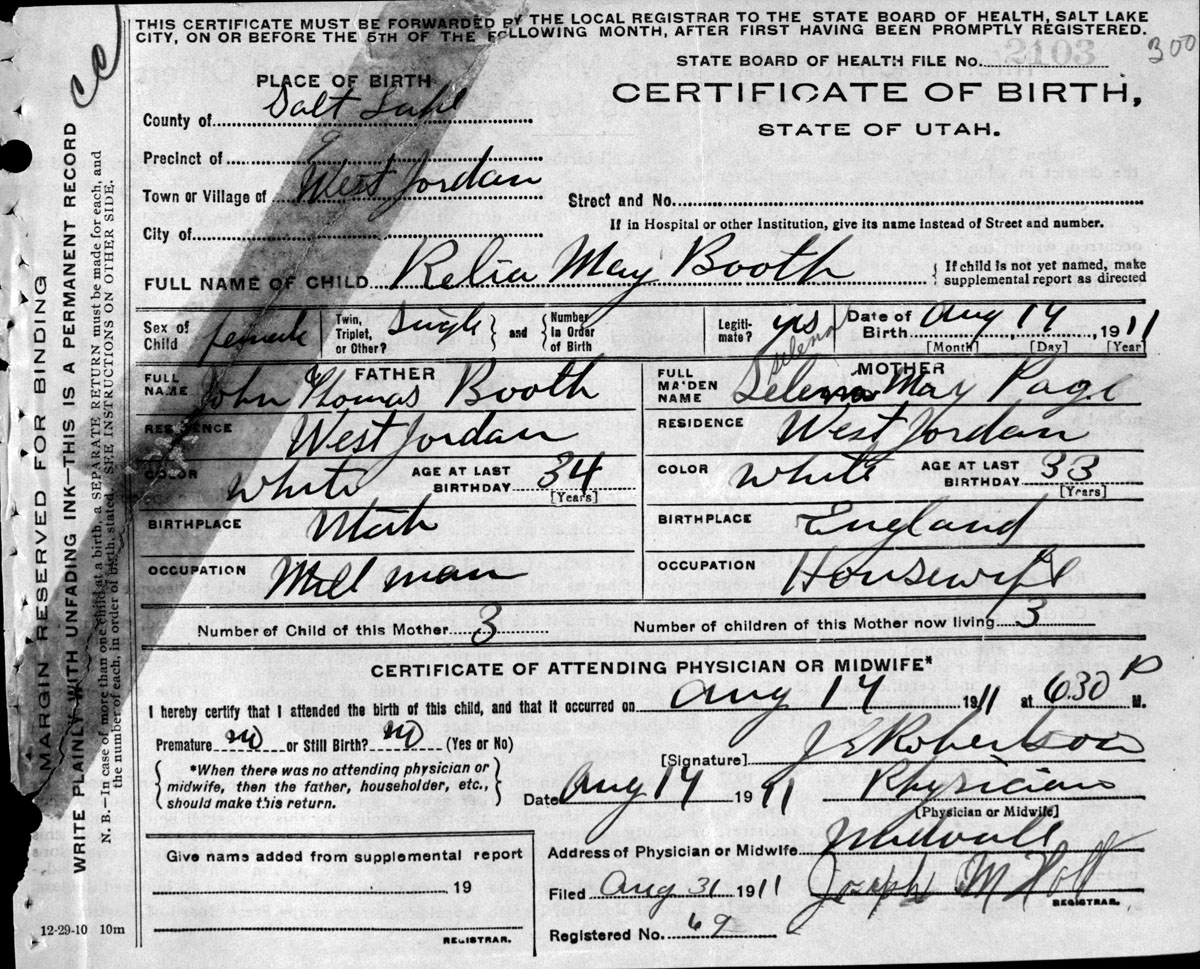 THIS CERTIFICATE MUST BE FORWARDED BY THE LOCAL REGISTRAR TO THE STATE BOARD OF HEALTH, SALT LAKE
CITY, ON OR BEFORE THE 5TH OF THE FOLLOWING MONTH, AFTER FIRST HAVING BEEN PROMPTLY REGISTERED.
300
STATE BOARD OF HEALTH FILE No. 2103
CERTIFICATE OF BIRTH,
STATE OF UTAH.
PLACE OF BIRTH
County of Salt Lake
Precinct of
Town or Village of West Jordan
City of
Street and No.
If in Hospital or other Institution, give its name instead of Street and number.
FULL NAME OF CHILD Relia May Booth { If child is not yet named, make
supplemental report as directed
Sex of Child female
Twin, Triplet, or Other? Single } and { Number in Order of Birth
Legiti-mate? yes
Date of Birth Aug 14 1911
[Month] [Day] [Year]
FATHER
FULL NAME John Thomas Booth
RESIDENCE West Jordan
COLOR White AGE AT LAST BIRTHDAY 34
[Years]
BIRTHPLACE Utah
OCCUPATION Mill man
MOTHER
Selena
FULL MA'DEN NAME Selena May Page
RESIDENCE West Jordan
COLOR White AGE AT LAST BIRTHDAY 33
[Years]
BIRTHPLACE England
OCCUPATION Housewife
Number of Child of this Mother 3 Number of children of this Mother now living 3
CERTIFICATE OF ATTENDING PHYSICIAN OR MIDWIFE*
I hereby certify that I attended the birth of this child, and that it occurred on Aug 14 1911 at 630 P M.
Premature no or Still Birth? no (Yes or No)
{ *When there was no attending physician or
midwife, then the father, householder, etc.,
should make this return. }
[Signature] J E Robertson
Date Aug 14 1911 Physician
[Physician or Midwife]
Address of Physician or Midwife Midvale
Filed Aug 31 1911 Joseph M Holt
REGISTRAR.
Registered No. 69
Give name added from supplemental report
19
REGISTRAR.
12-29-10 10m
MARGIN RESERVED FOR BINDING
WRITE PLAINLY WITH UNFADING INK—THIS IS A PERMANENT RECORD
N. B.—In case of more than one child at a birth, a SEPARATE RETURN must be made for each, and
the number of each, in order of birth, stated. SEE INSTRUCTIONS ON OTHER SIDE.